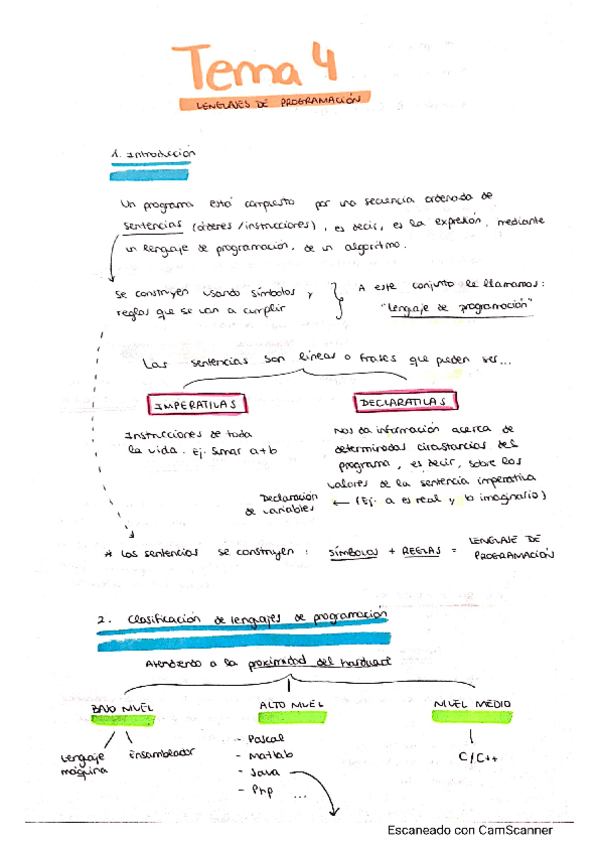 Tema 4
LENGUAJES DE PROGRAMACIÓN
1. Introducción
Un programa está compuesto por una secuencia ordenada de
sentencias (órdenes/instrucciones), es decir, es la expresión, mediante
un lenguaje de programación, de un algoritmo.
Se construyen usando símbolos y
reglas que se van a cumplir
A este conjunto le llamamos:
"Lenguaje de programación"
Las sentencias son líneas o frases que pueden ser...
IMPERATIVAS
DECLARATIVAS
Instrucciones de toda
la vida. Ej. Sumar a+b
Nos da información acerca de
determinadas circustancias del
programa, es decir, sobre los
valores de la sentencia imperativa
← (Ej. a es real y b imaginario)
Declaración
de variables
* Las sentencias se construyen: SÍMBOLOS + REGLAS = LENGUAJE DE
PROGRAMACIÓN
2. Clasificación de lenguajes de programación
Atendiendo a la proximidad del hardware
BAJO NIVEL
ALTO NIVEL
NIVEL MEDIO
Lenguaje
máquina
Ensamblador
- Pascal
- Matlab
- Java
- Php ...
C/C++
Escaneado con CamScanner